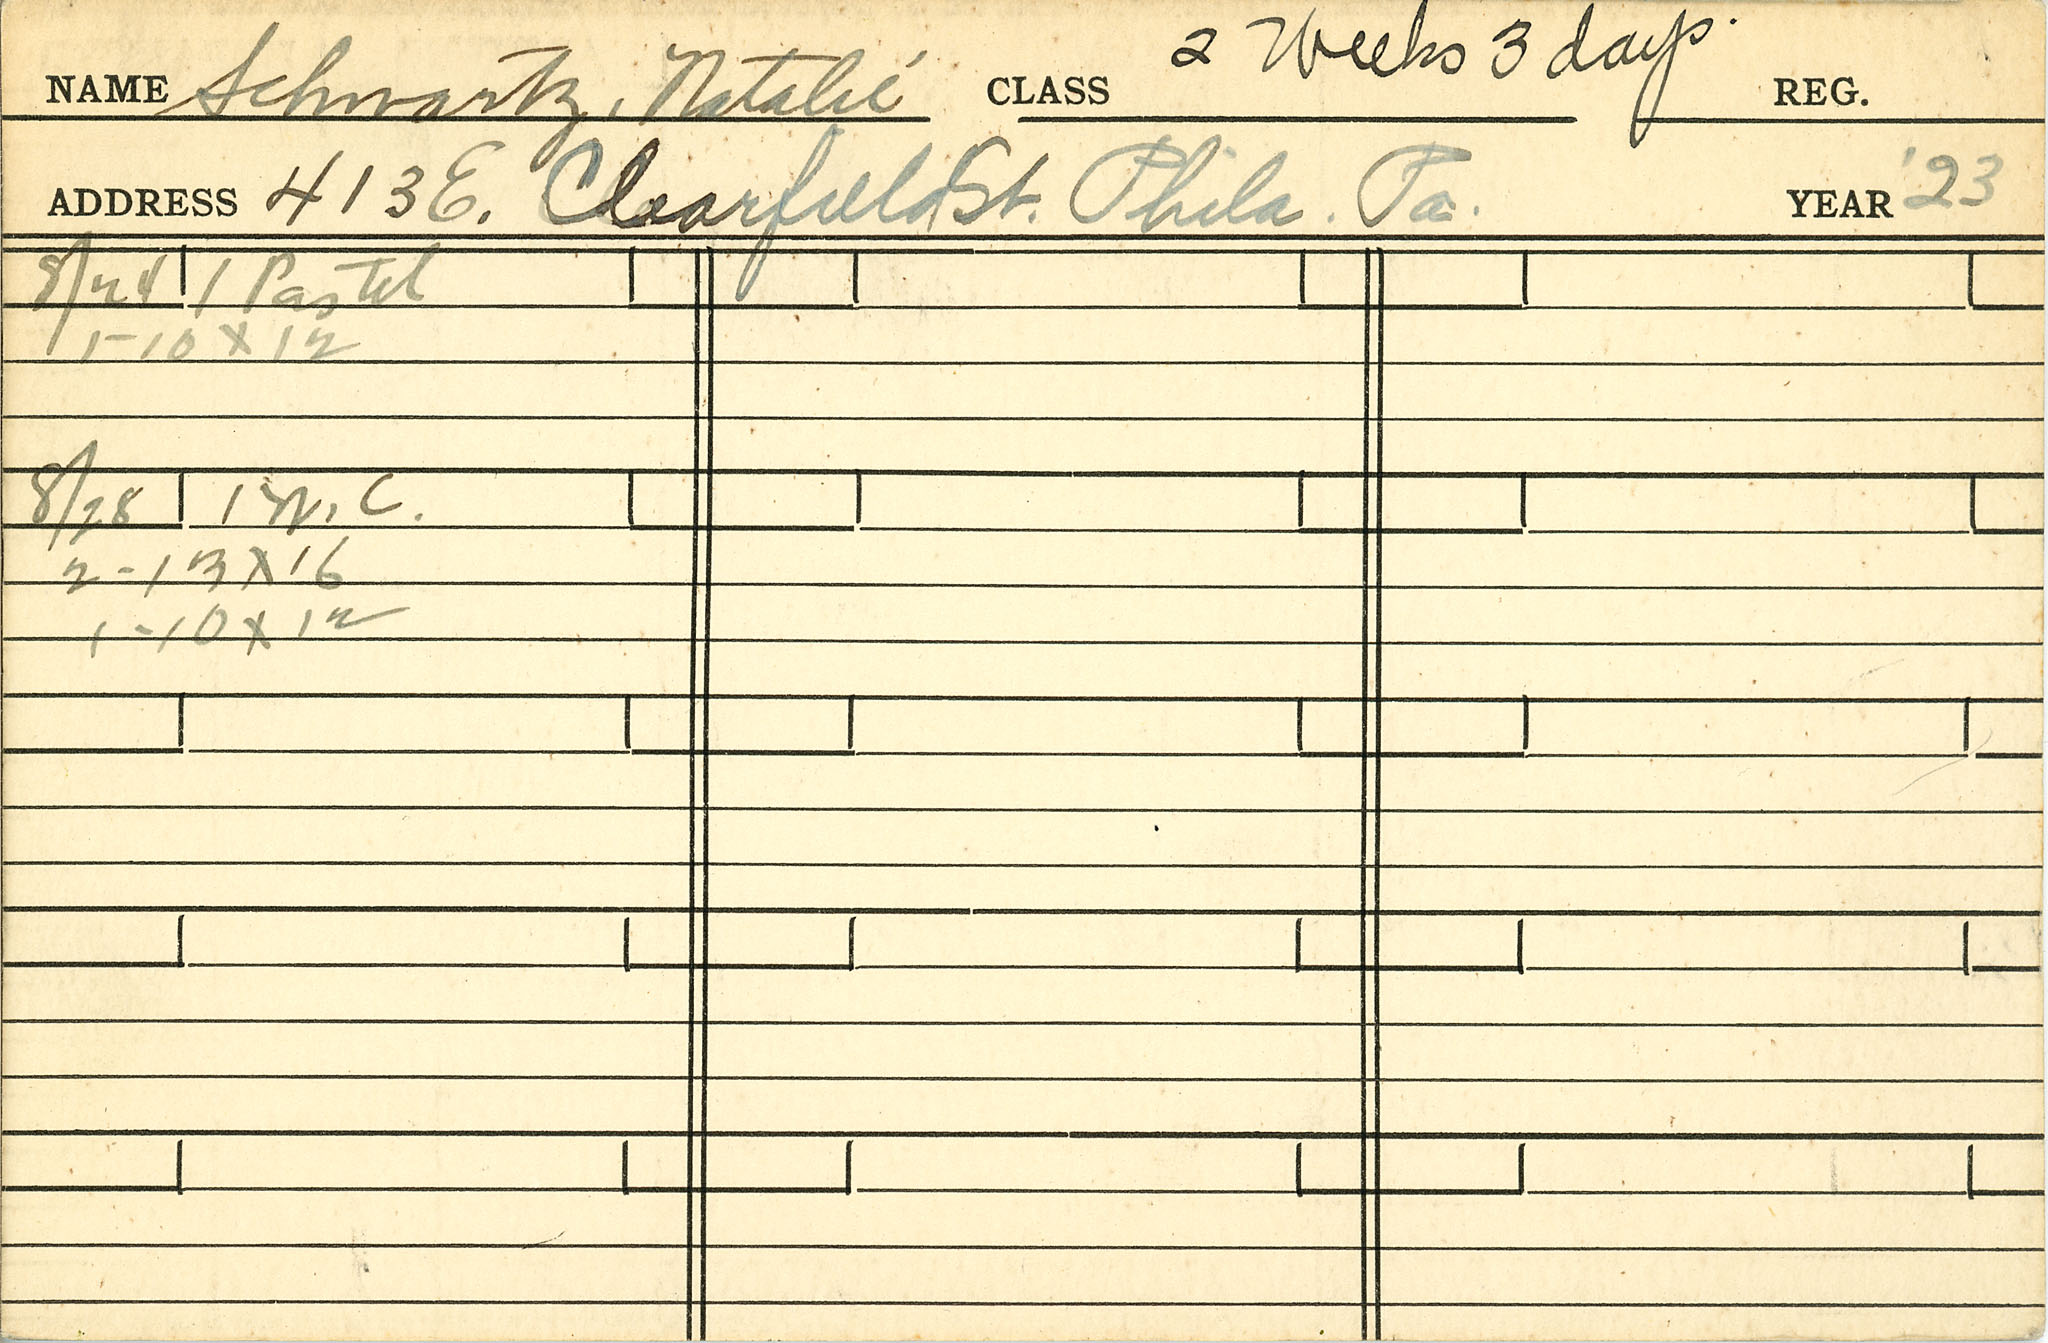 NAME Schwartz, Natalie CLASS 2 Weeks 3 days. REG.
ADDRESS 413 E. Clearfield St. Phila. Pa. YEAR '23
8/24 1 Pastel
1-10 x 12
8/28 1 W. C.
2-13 x 16
1-10 x 12